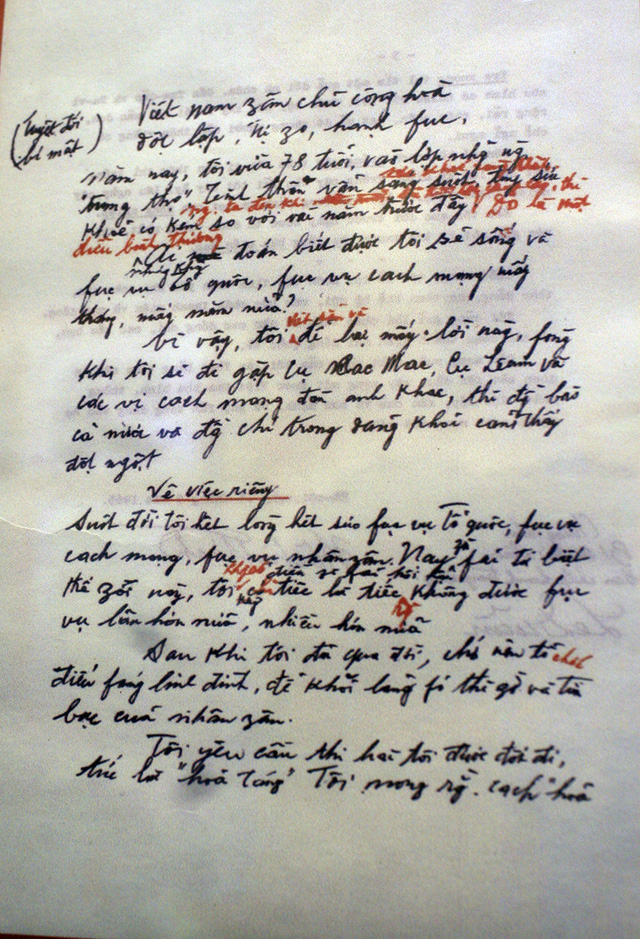 (Tuyệt đối
bí mật)
Việt nam zân chủ cộng hoà
độc lập, tự zo, hạnh fúc.
năm nay, tôi vừa 78 tuổi, vào lớp những
"trung thọ". Tinh thần vẫn sáng suốt, tuy sức
khoẻ có kém so với vài năm trước đây. Đó là một
điều bình thường
Ai mà đoán biết được tôi sẽ sống và
fục vụ tổ quốc, fục vụ cách mạng mấy
tháng, mấy năm nữa?
Vì vậy, tôi viết sẵn về
để lại mấy lời này, fòng
khi tôi sẽ đi gặp Cụ Các Mác, Cụ Lênin và
các vị cách mạng đàn anh khác, thì đồng bào
cả nước và đồng chí trong đảng khỏi cảm thấy
đột ngột
Về việc riêng
Suốt đời tôi hết lòng hết sức fục vụ Tổ quốc, fục vụ
cách mạng, fục vụ nhân zân. Nay zù fải từ biệt
thế zới này, tôi không có điều gì fải hối hận
chỉ tiếc là tiếc không được fục
vụ lâu hơn nữa, nhiều hơn nữa
Sau khi tôi đã qua đời, chớ nên tổ chức
điếu fúng linh đình, để khỏi lãng fí thì giờ và tiền
bạc của nhân zân.
Tôi yêu cầu thi hài tôi được đốt đi,
tức là "hoả táng". Tôi mong rằng cách "hoả